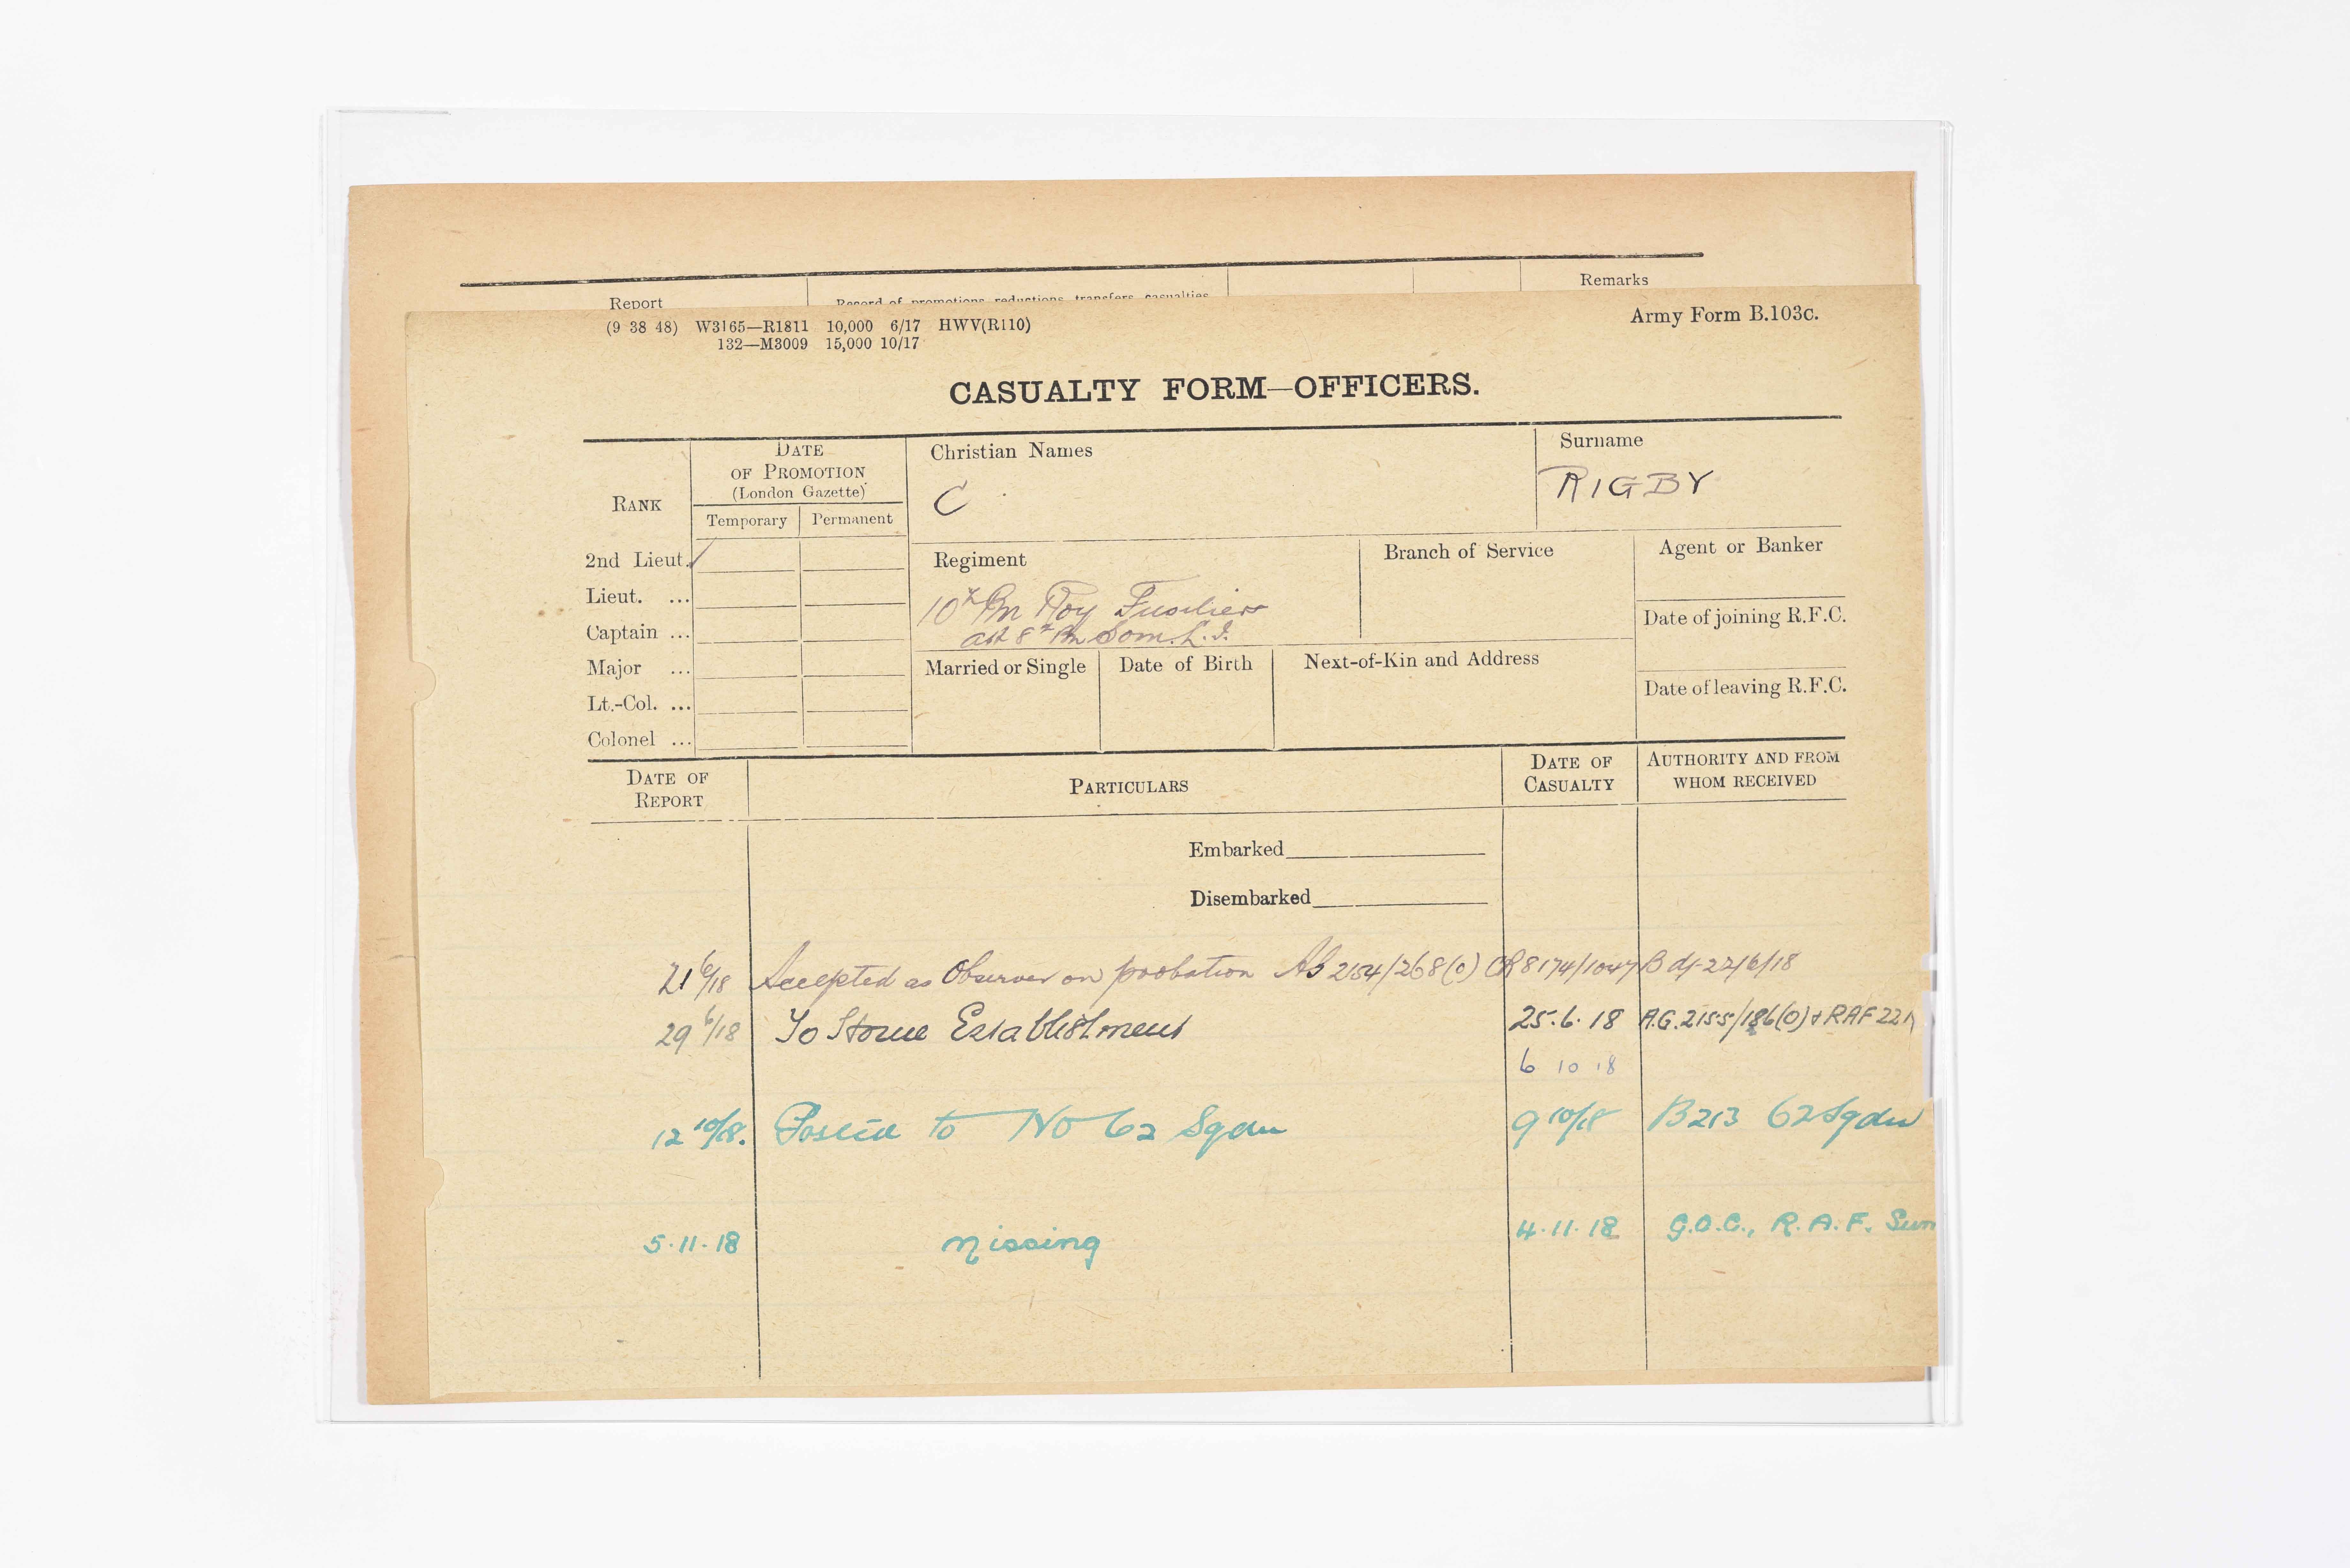 Remarks
Report
Record of promotions, reductions, transfers, casualties
(9 38 48) W3165—R1811 10,000 6/17 HWV(R110)
132—M3009 15,000 10/17
Army Form B.103c.
CASUALTY FORM—OFFICERS.
RANK
DATE OF PROMOTION (London Gazette)
Temporary
Permanent
Christian Names
C
Surname
RIGBY
2nd Lieut. /
Lieut. ...
Captain ...
Major ...
Lt.-Col. ...
Colonel ...
Regiment
10th Bn Roy Fusiliers
att 8th Bn Som. L.I.
Branch of Service
Agent or Banker
Date of joining R.F.C.
Date of leaving R.F.C.
Married or Single
Date of Birth
Next-of-Kin and Address
DATE OF REPORT
PARTICULARS
DATE OF CASUALTY
AUTHORITY AND FROM WHOM RECEIVED
Embarked
Disembarked
21 6/18 Accepted as Observer on probation AG 2154/268(O) CR 8174/1047 B d/- 22/6/18
29 6/18 To Home Establishment 25.6.18 A.G. 2155/186(O) & RAF 221
6 10 18
12 10/18. Posted to No 62 Sqdn 9 10/18 B213 62 Sqdn
5.11.18 Missing 4.11.18 G.O.C., R.A.F. Sum